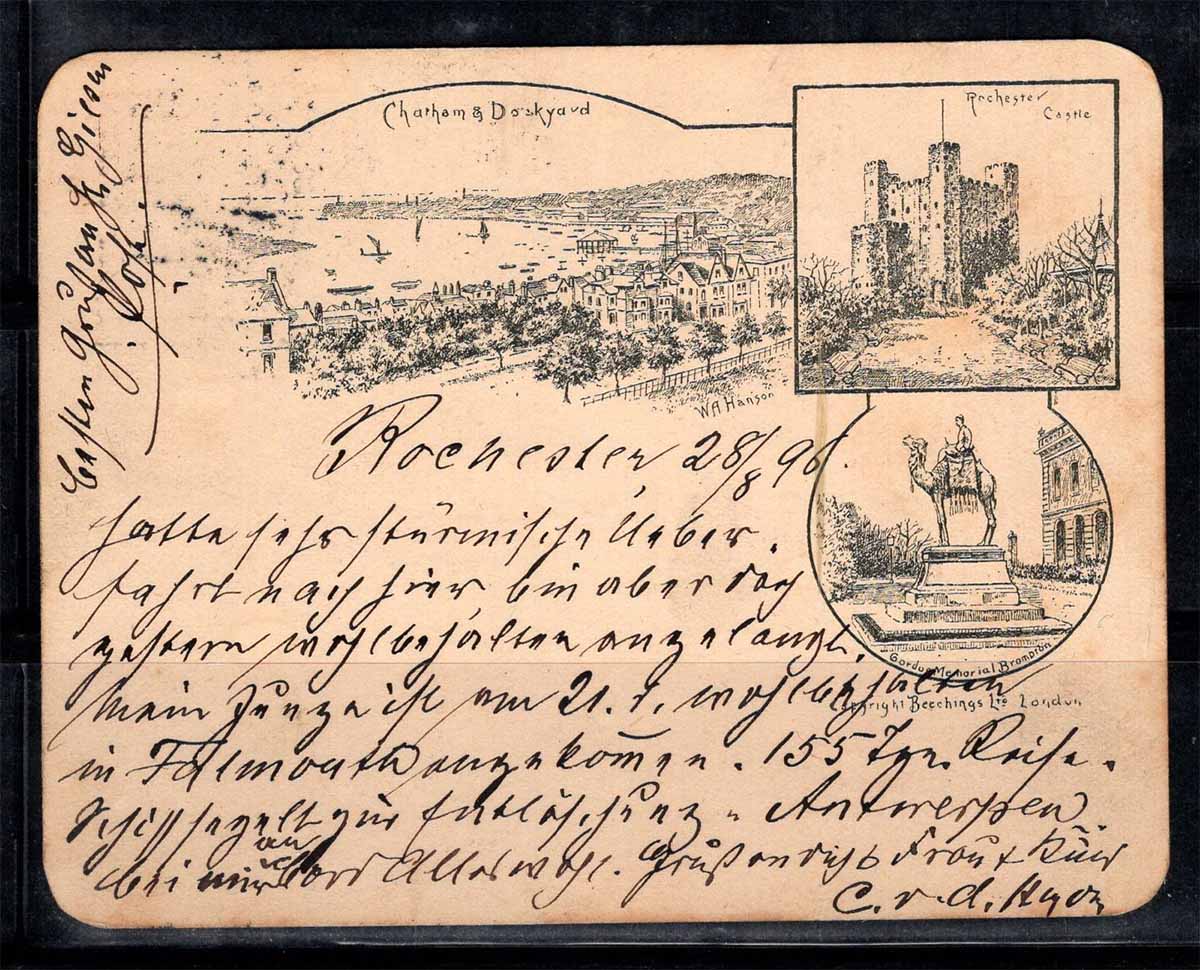 Chatham & Dockyard
Rochester
Castle
W A Hanson
Rochester, 28/8 96.
hatte sehr stürmische Ueber-
fahrt nach hier, bin aber doch
gestern wohlbehalten angelangt.
Mein Junge ist am 21. wohlbehalten
in Falmouth angekommen. 155 Tge. Reise.
Schiff segelt zur Entlöschung n. Antwerpen
bei an Bord Alles wohl. Gruß an dich Frau & Kind
C. v. d.
Gordon Memorial Brompton
Copyright Beechings Ltd London
Besten Gruß an